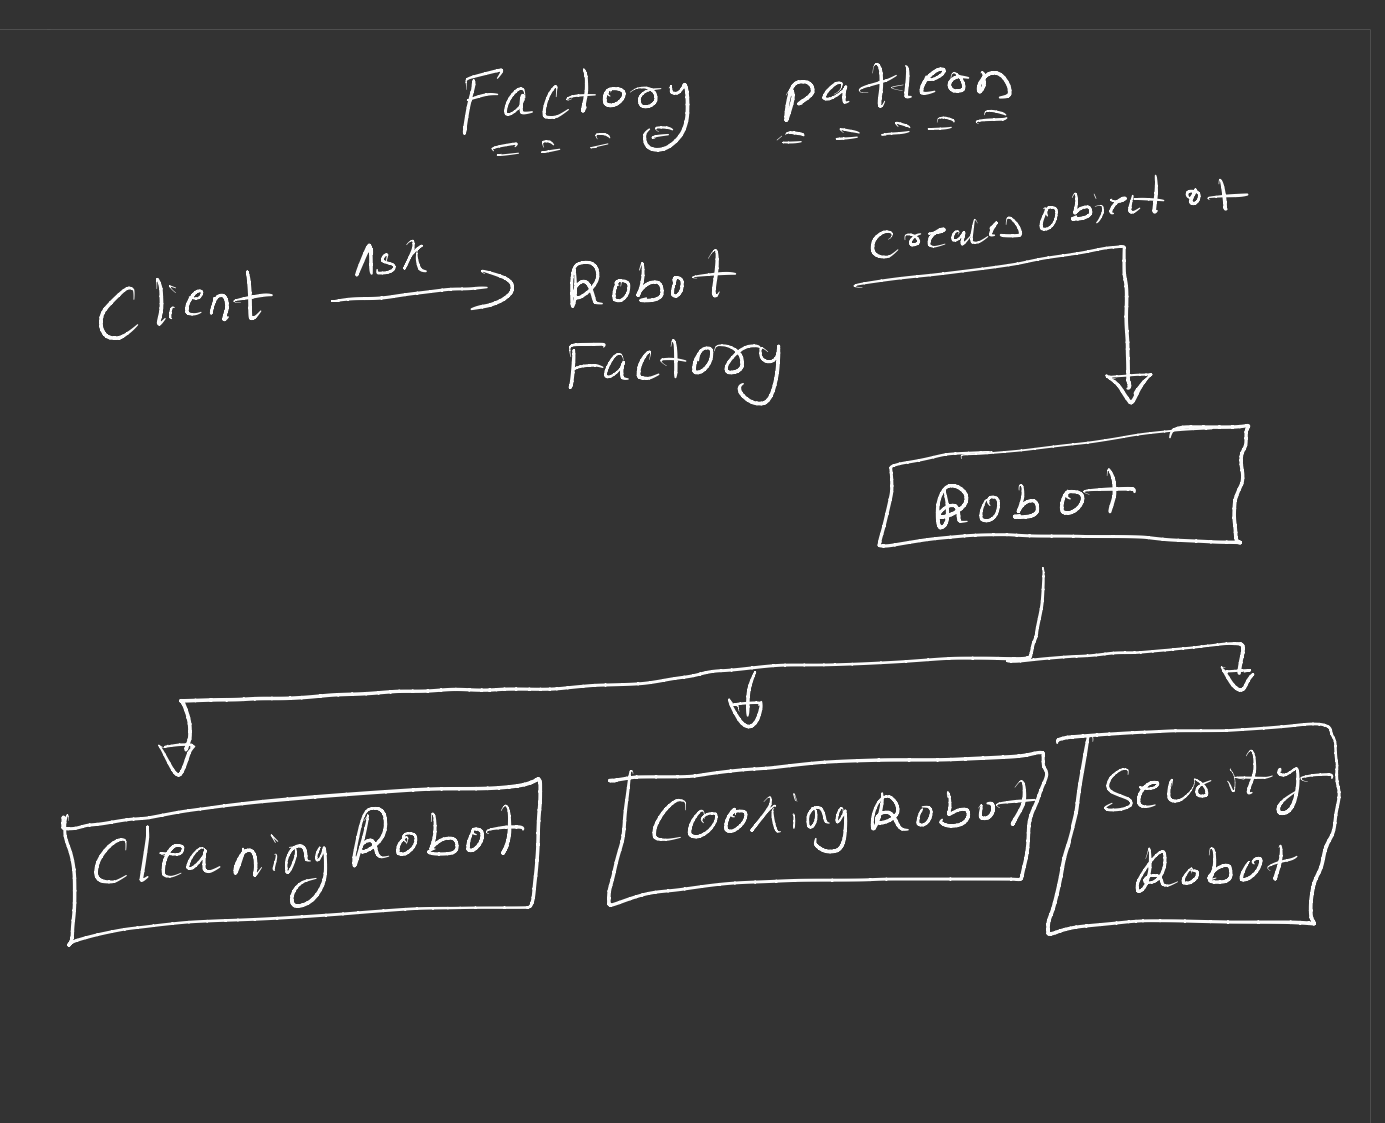 Factory pattern
Client
Ask
Robot
Factory
creates object of
Robot
Cleaning Robot
Cooking Robot
Security
Robot